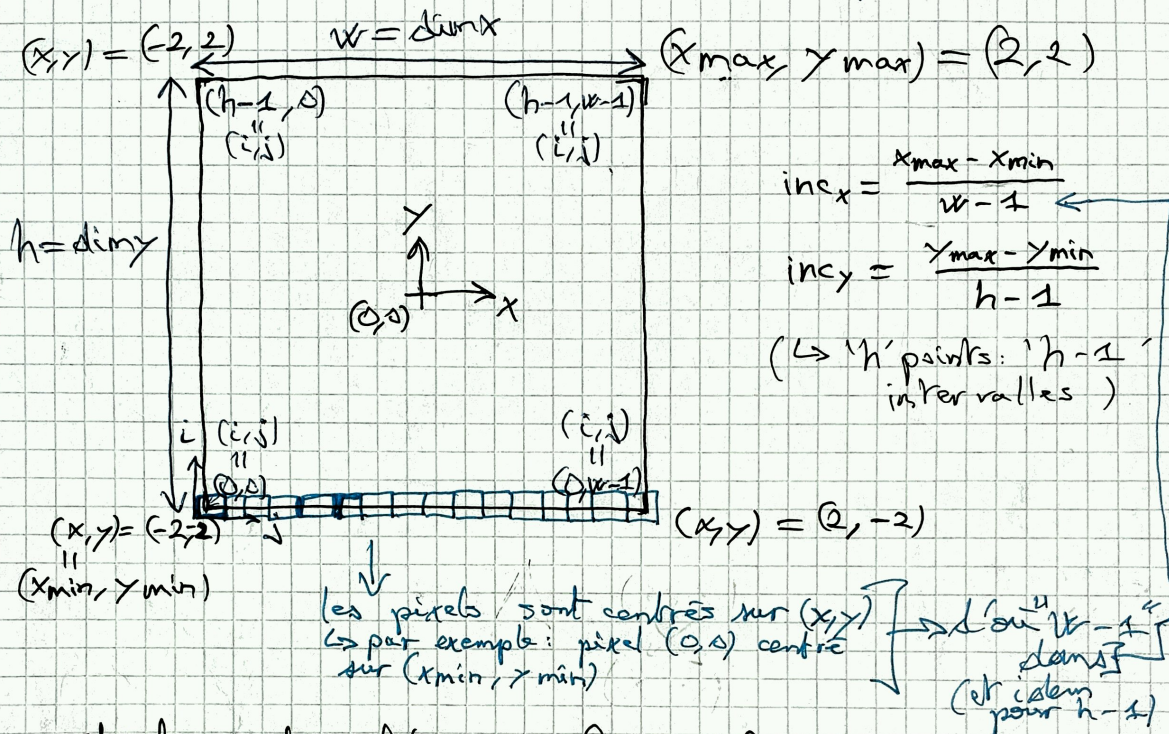 (x,y) = (-2, 2)
w = dimx
(xmax, ymax) = (2, 2)
(h-1, 0)
(h-1, w-1)
=
=
(i,j)
(i,j)
incx = xmax - xmin
w - 1
h = dimy
y
incy = ymax - ymin
h - 1
(0,0)
x
(↳ 'h' points: 'h-1'
intervalles )
i
(i,j)
(i,j)
=
=
(0,0)
(0,w-1)
(x,y)= (-2,-2)
j
(x,y) = (2, -2)
=
(xmin, ymin)
les pixels sont centrés sur (x,y)
↳ par exemple: pixel (0,0) centré
sur (xmin, ymin)
→ d'où "w-1"
dans
(et idem
pour h-1)